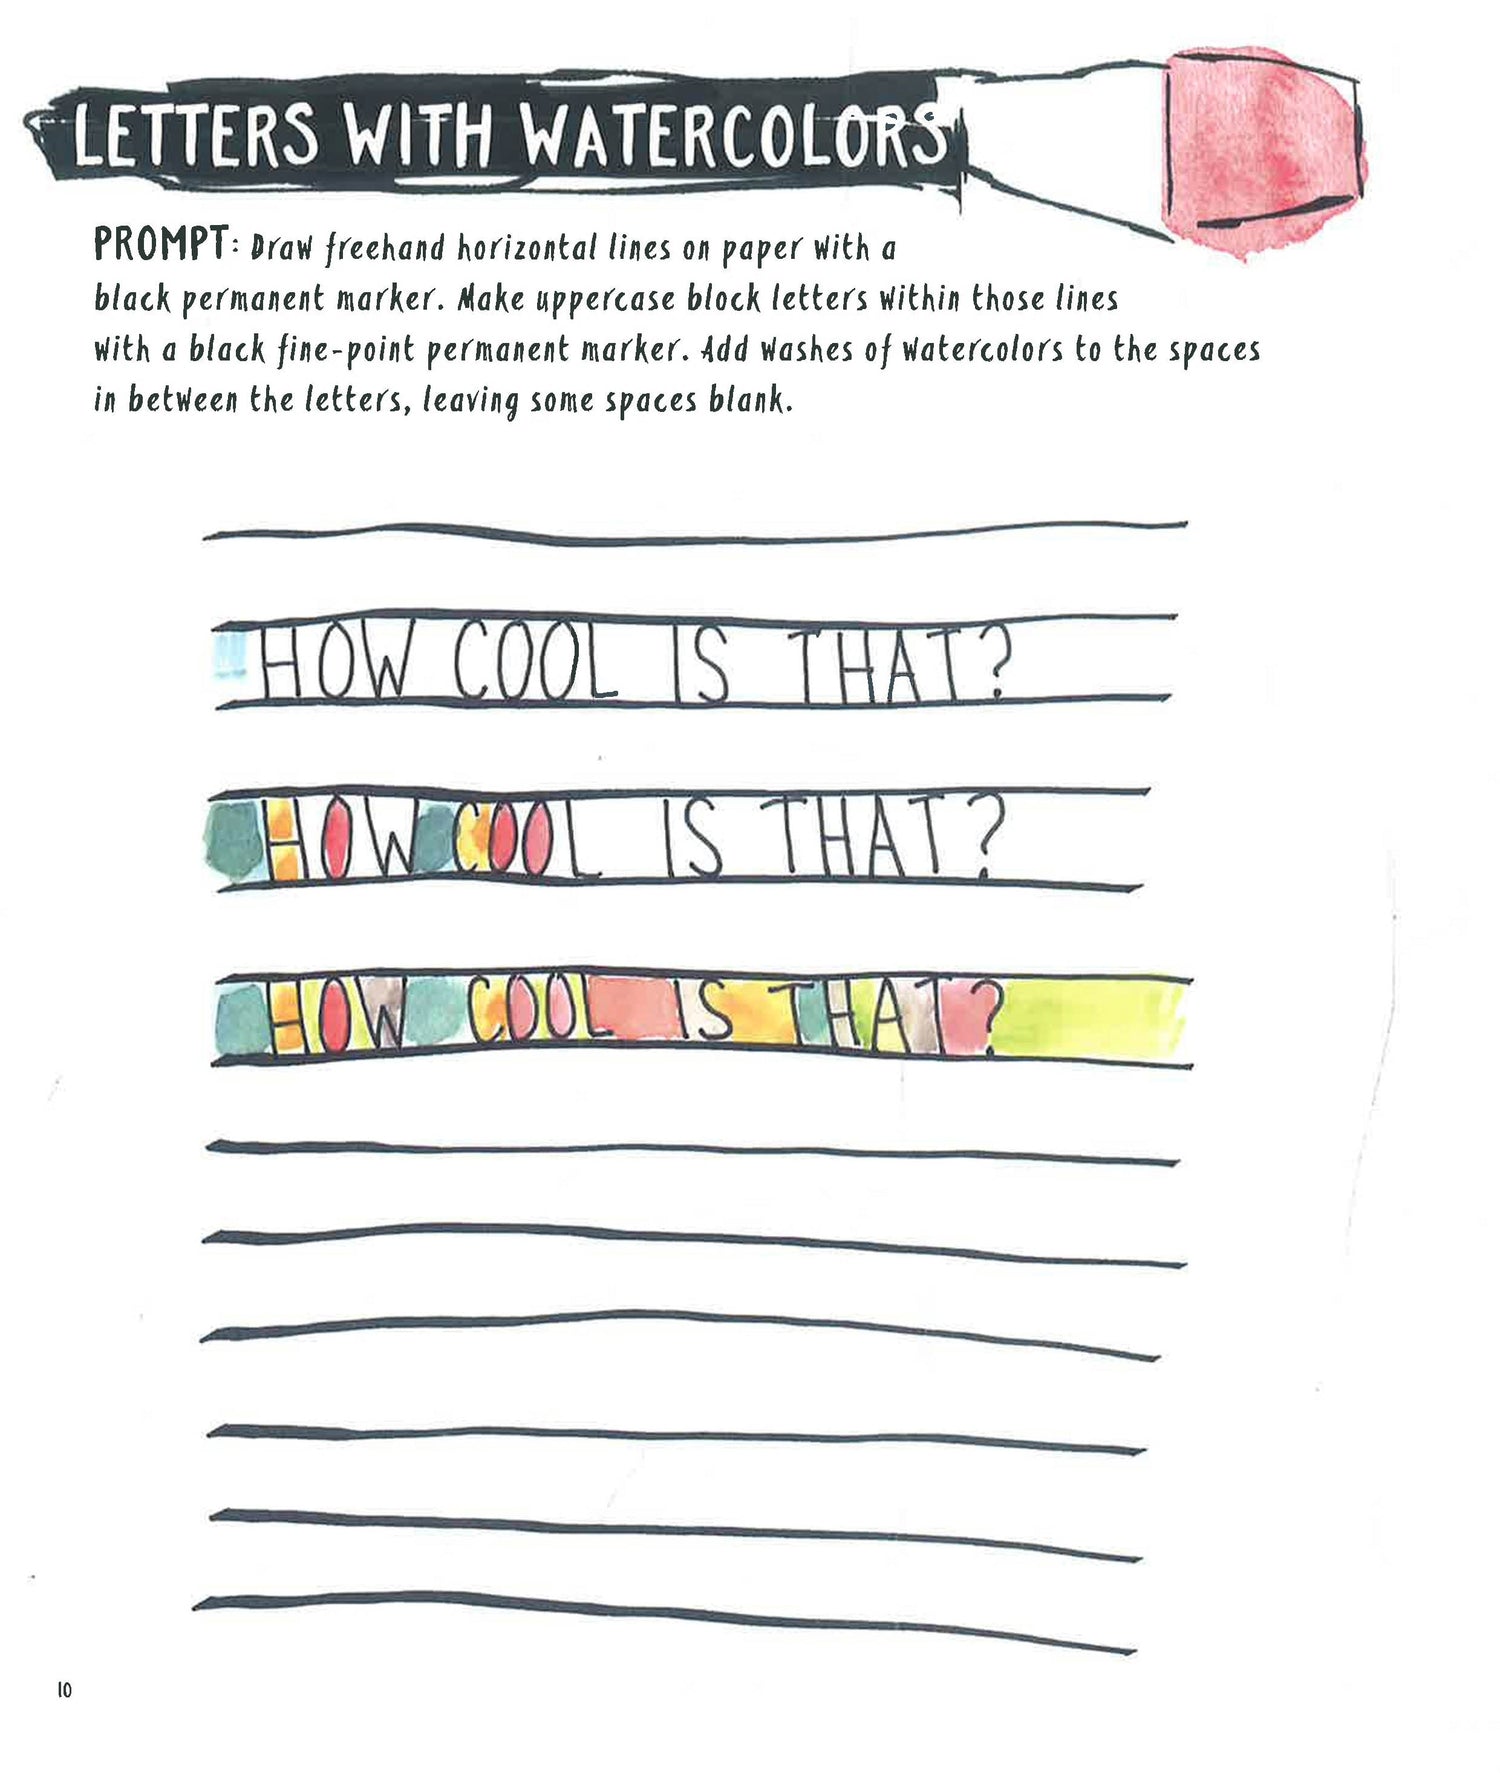 LETTERS WITH WATERCOLORS
PROMPT: Draw freehand horizontal lines on paper with a
black permanent marker. Make uppercase block letters within those lines
with a black fine-point permanent marker. Add washes of watercolors to the spaces
in between the letters, leaving some spaces blank.
HOW COOL IS THAT?
HOW COOL IS THAT?
HOW COOL IS THAT?
10